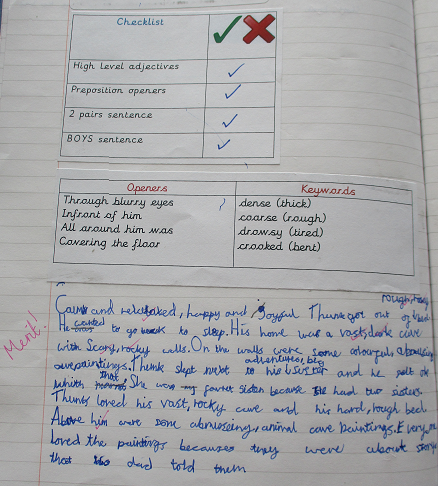 Checklist
High Level adjectives
Preposition openers
2 pairs sentence
BOYS sentence
Openers Keywords
Through blurry eyes dense (thick)
Infront of him coarse (rough)
All around him was drowsy (tired)
Covering the floor crooked (bent)
Merit!
rough, rocky
Calm and relaxed, happy and joyful Thunk got out of bed
He wanted to go back to sleep. His home was a vast, dark cave
with Scary, rocky walls. On the walls were some colourful
cave paintings. Thunk slept next to his sister and he
adventures, big
that She was favret sister because he had two sisters.
Thunk loved his vast, rocky cave and his hard, rough bed.
Above him were some animal cave paintings. Every one
loved the paintings because they were about storys
that his dad told them